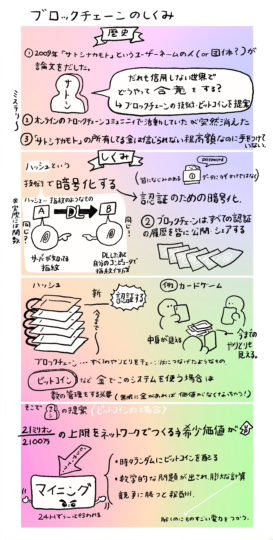 ブロックチェーンのしくみ
歴史
① 2009年 "サトシナカモト"というユーザーネームの人(or 団体?)が
論文をだした。
サトシ
ミステリー
だれも信用しない世界で
どうやって合意をする?
↳ ブロックチェーンの技術・ビットコインを提案
② オンラインのブロックチェーンコミュニティで活動していたが突然消えた
③ "サトシナカモト"の所有してる金は信じられない程高額なのに手をつけて
いない。
しくみ
ハッシュという
技術で暗号化する
ハッシュ=指紋のようなもの
A
DL
B
同じ?
同じ?
サーバが知ってる
指紋
DLした物を
自分のコンピュータで
指紋作成
※実際は関数
password
皆になじみのある
データにカギかけてはなく
認証のための暗号化。
② ブロックチェーンはすべての認証
の履歴を皆に公開・シェアする
ハッシュ
新
認証する
今まで
(例) カードゲーム
中身が見える
今までの
やりとり
見える。
ブロックチェーン…すべてのやりとりをチェーン状につなげたようなもの
ビットコイン など 金でこのシステムを使う場合は
数の管理をする必要
(無限に金があれば価値がなくなっちゃう!)
そこで
の提案(ビットコインの場合)
21ミリオン
2100万
の上限をネットワークでつくる→希少価値が
マイニング
24hずーっと行われる
・時々ランダムにビットコインを配る
・数学的な問題が出され、膨大な計算
競争に勝つと報酬。
解くのにものすごい電力をつかう。